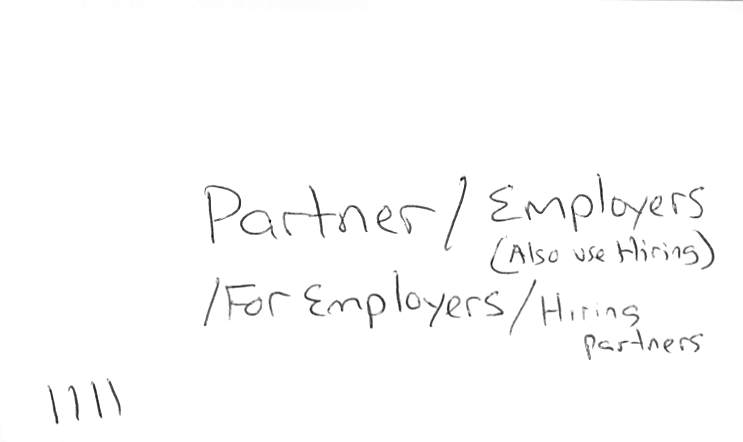 Partner/Employers
(Also use Hiring)
/For Employers/Hiring
partners